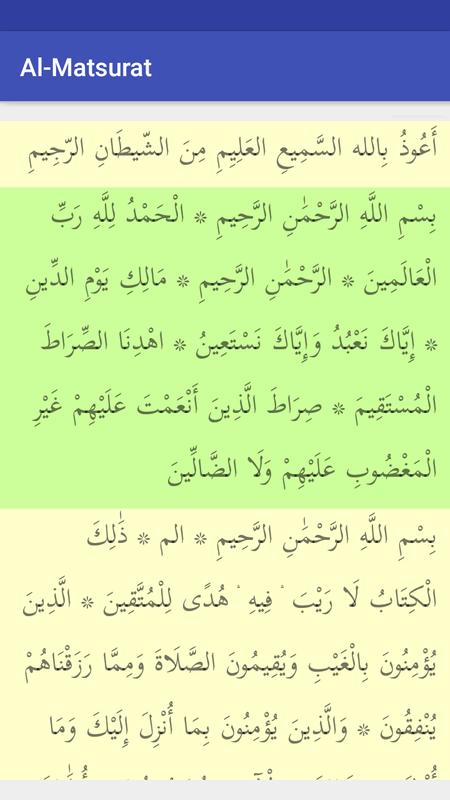 Al-Matsurat
أَعُوذُ بِالله السَّمِيعِ العَلِيمِ مِنَ الشّيطَانِ الرّجِيمِ
بِسْمِ اللَّهِ الرَّحْمَٰنِ الرَّحِيمِ * الْحَمْدُ لِلَّهِ رَبِّ
الْعَالَمِينَ * الرَّحْمَٰنِ الرَّحِيمِ * مَالِكِ يَوْمِ الدِّينِ
* إِيَّاكَ نَعْبُدُ وَإِيَّاكَ نَسْتَعِينُ * اهْدِنَا الصِّرَاطَ
الْمُسْتَقِيمَ * صِرَاطَ الَّذِينَ أَنْعَمْتَ عَلَيْهِمْ غَيْرِ
الْمَغْضُوبِ عَلَيْهِمْ وَلَا الضَّالِّينَ
بِسْمِ اللَّهِ الرَّحْمَٰنِ الرَّحِيمِ * الم * ذَٰلِكَ
الْكِتَابُ لَا رَيْبَ ۛ فِيهِ ۛ هُدًى لِلْمُتَّقِينَ * الَّذِينَ
يُؤْمِنُونَ بِالْغَيْبِ وَيُقِيمُونَ الصَّلَاةَ وَمِمَّا رَزَقْنَاهُمْ
يُنْفِقُونَ * وَالَّذِينَ يُؤْمِنُونَ بِمَا أُنْزِلَ إِلَيْكَ وَمَا